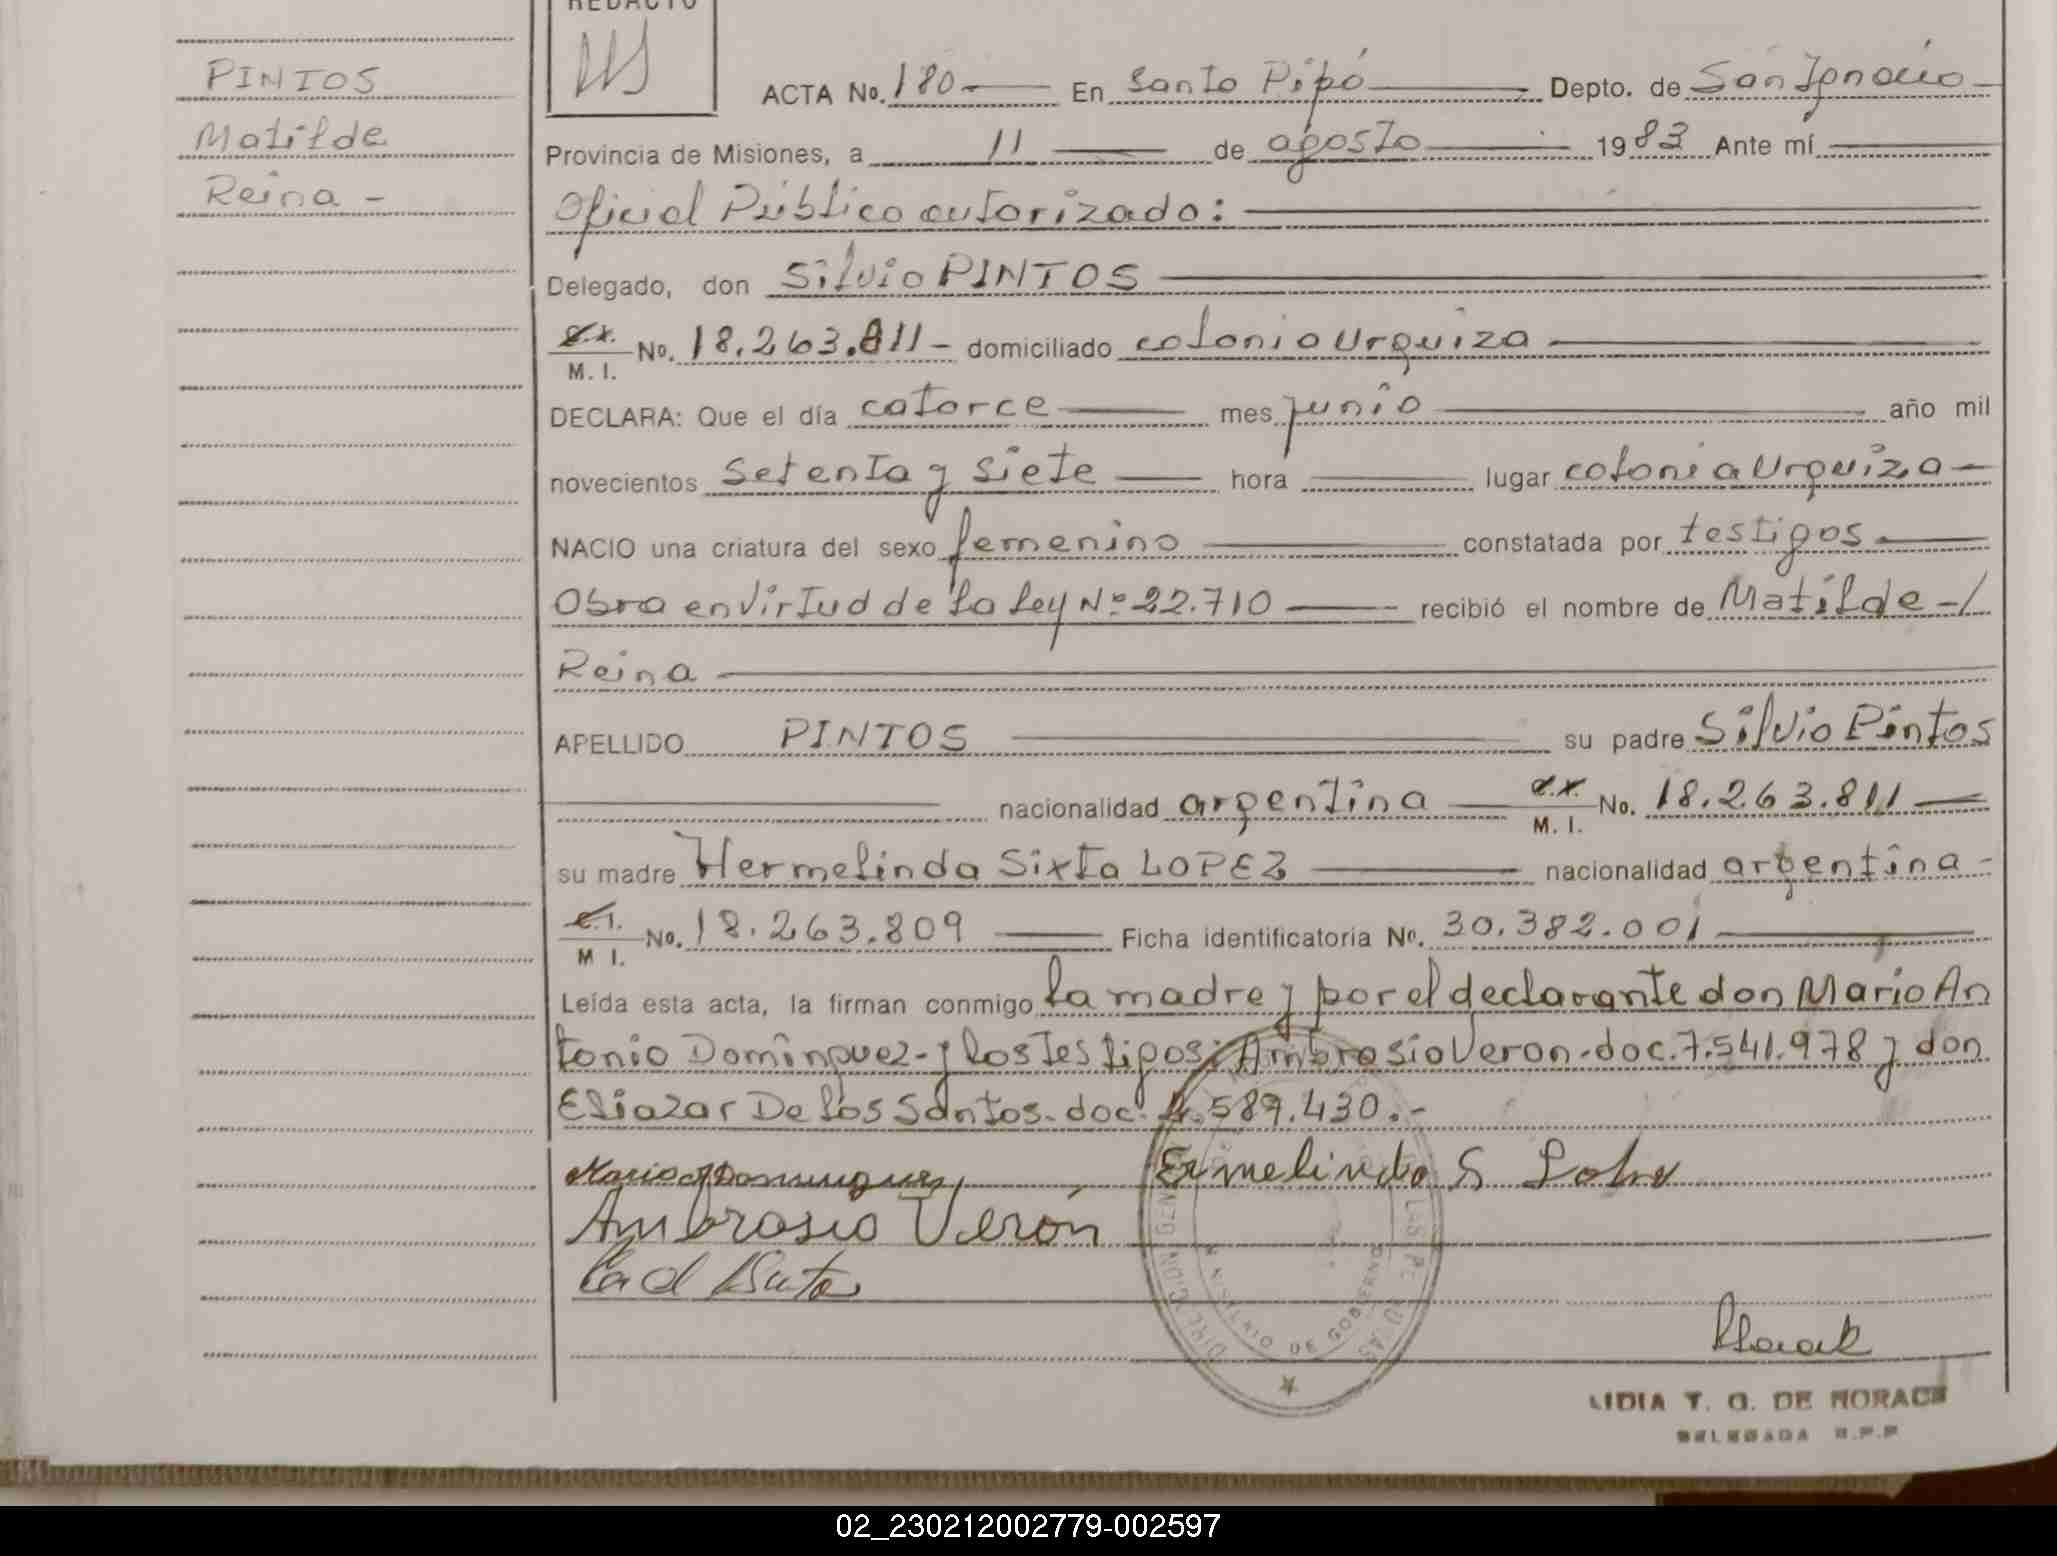 REDACTO
PINTOS
Matilde
Reina -
ACTA No. 180 En Santo Pipó Depto. de San Ignacio
Provincia de Misiones, a 11 de agosto 1983 Ante mí
Oficial Público autorizado:
Delegado, don Silvio PINTOS
C.I. M. I. No. 18.263.811 - domiciliado colonia Urquiza
DECLARA: Que el día catorce mes junio año mil
novecientos setenta y siete hora lugar colonia Urquiza
NACIO una criatura del sexo femenino constatada por testigos
Obra en virtud de la Ley Nº 22.710 recibió el nombre de Matilde -/
Reina
APELLIDO PINTOS su padre Silvio Pintos
nacionalidad argentina C.I. M. I. No. 18.263.811
su madre Hermelinda Sixta LOPEZ nacionalidad argentina -
C.I. M I. No. 18.263.809 Ficha identificatoria No. 30.382.001
Leída esta acta, la firman conmigo la madre y por el declarante don Mario An
tonio Domínguez - y los testigos: Ambrosio Veron - doc. 7.541.978 y don
Eliazar De los Santos - doc. 4.589.430.-
Mario A Dominguez
Ermelinda S
Ambrosio Verón
DIRECCION GENERAL DE LAS PERSONAS
MINISTERIO DE GOBIERNO
LIDIA T. G. DE HORACK
DELEGADA R.P.P
02_230212002779-002597